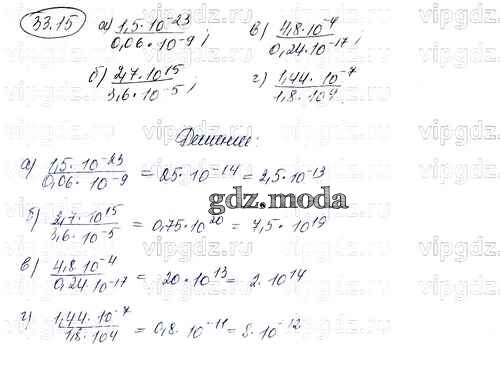 33.15 а) 1,5·10⁻²³/0,06·10⁻⁹; в) 4,8·10⁻⁴/0,24·10⁻¹⁷;
б) 2,7·10¹⁵/3,6·10⁻⁵; г) 1,44·10⁻⁷/1,8·10⁴
Решение:
а) 1,5·10⁻²³/0,06·10⁻⁹ = 25·10⁻¹⁴ = 2,5·10⁻¹³
gdz.moda
б) 2,7·10¹⁵/3,6·10⁻⁵ = 0,75·10²⁰ = 7,5·10¹⁹
в) 4,8·10⁻⁴/0,24·10⁻¹⁷ = 20·10¹³ = 2·10¹⁴
г) 1,44·10⁻⁷/1,8·10⁴ = 0,8·10⁻¹¹ = 8·10⁻¹²